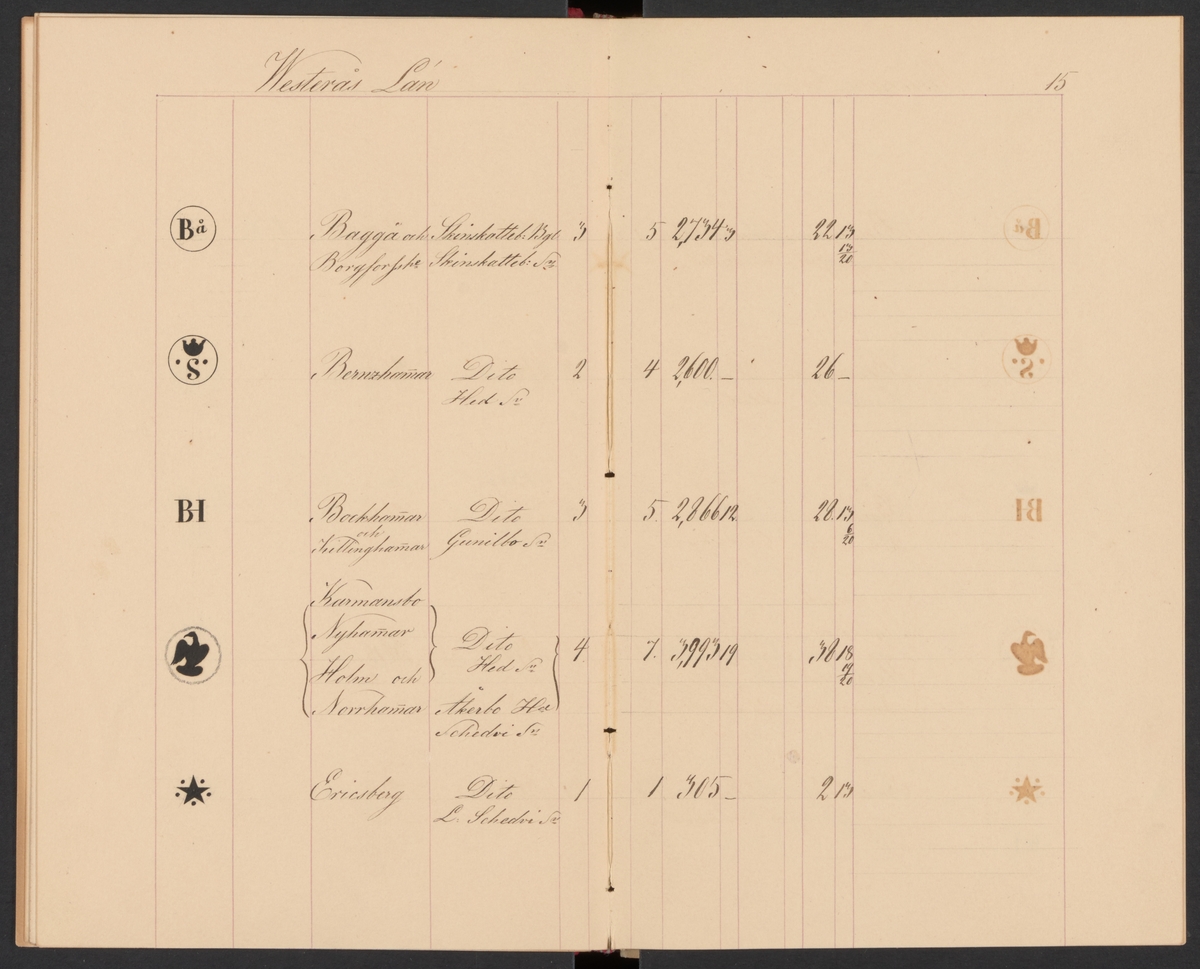 Westerås Län
15
Bå Baggå och Skinskatteb: Bgl 3 5 2,734 3 22 13 13/20
Borgforssh: Skinskatteb: Sn
·S· Bernzham̄ar Dito 2 4 2,600. – 26 –
Hed Sn
BH Bockham̄ar Dito 3 5. 2,866 12. 28. 13 6/20
och
Jutlingham̄ar Gunilbo Sn
Karmansbo
Nyham̄ar Dito 4 7. 3,993 19 38 18
Holm och Hed Sn
Norrham̄ar Åkerbo Hd
Schedvi Sn
Ericsberg Dito 1 1 305 – 2 13
L. Schedvi Sn